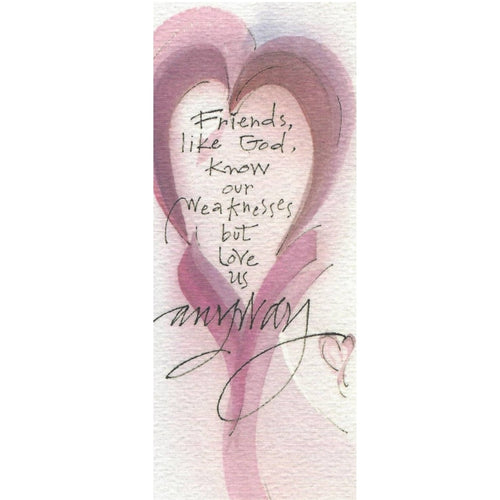 Friends,
like God,
know
our
weaknesses
but
love
us
anyway